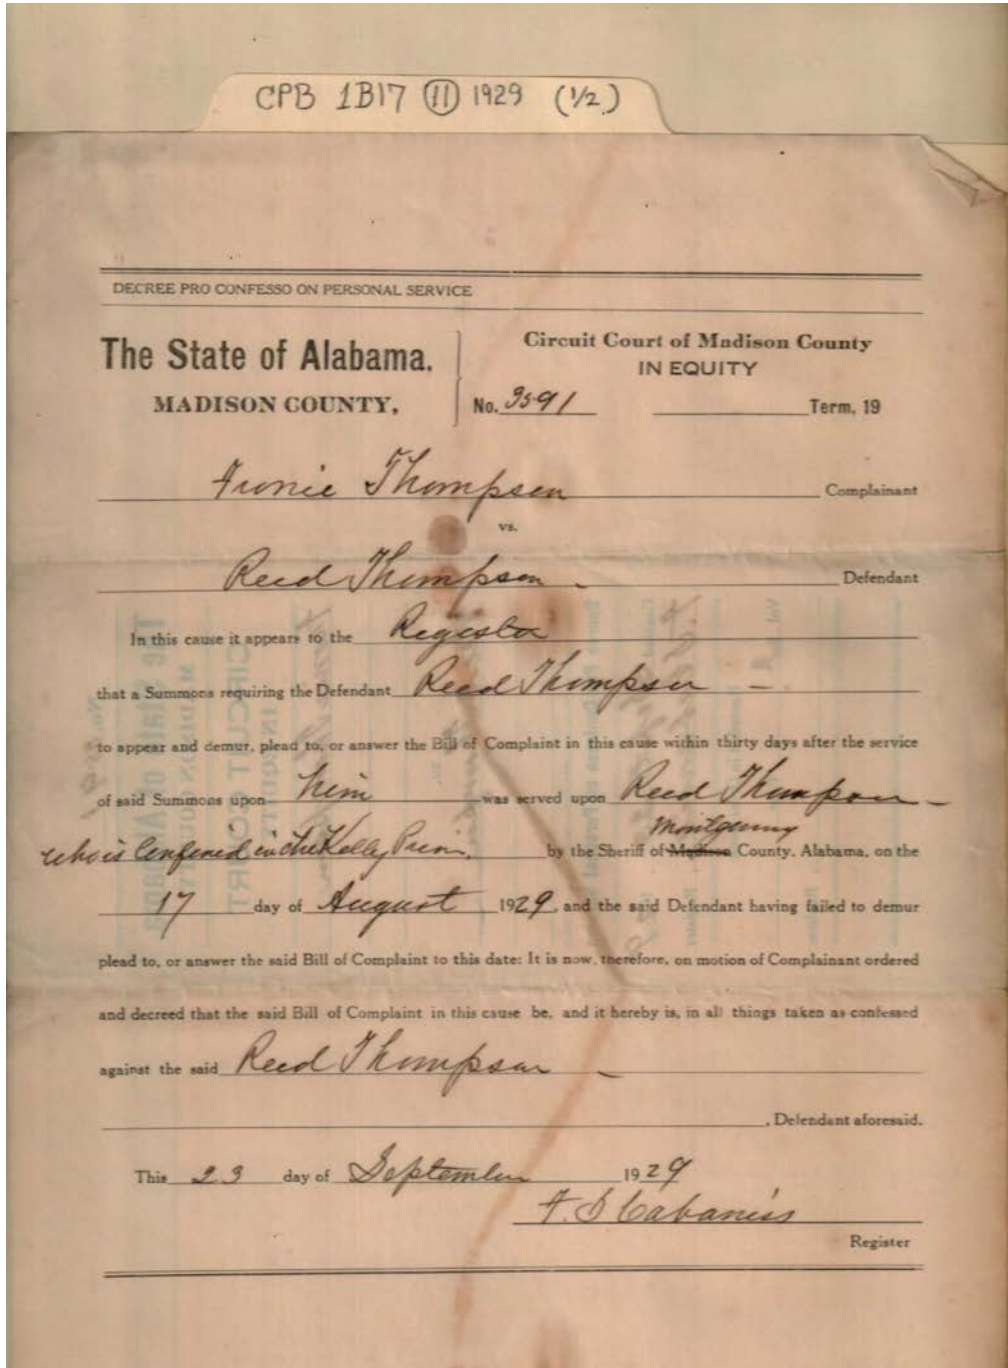 CPB 1B17 (11) 1929 (1/2)
DECREE PRO CONFESSO ON PERSONAL SERVICE
The State of Alabama,
MADISON COUNTY,
Circuit Court of Madison County
IN EQUITY
No. 3591 Term, 19
Thompson Complainant
vs.
Reed Thompson Defendant
In this cause it appears to the Register
that a Summons requiring the Defendant Reed Thompson
to appear and demur, plead to, or answer the Bill of Complaint in this cause within thirty days after the service
of said Summons upon him was served upon Reed Thompson
Montgomery
who is Confined in the Kelly Prison by the Sheriff of Madison County, Alabama, on the
17 day of August 1929, and the said Defendant having failed to demur
plead to, or answer the said Bill of Complaint to this date: It is now, therefore, on motion of Complainant ordered
and decreed that the said Bill of Complaint in this cause be, and it hereby is, in all things taken as confessed
against the said Reed Thompson
, Defendant aforesaid.
This 23 day of September 1929
F. D Cabaniss
Register